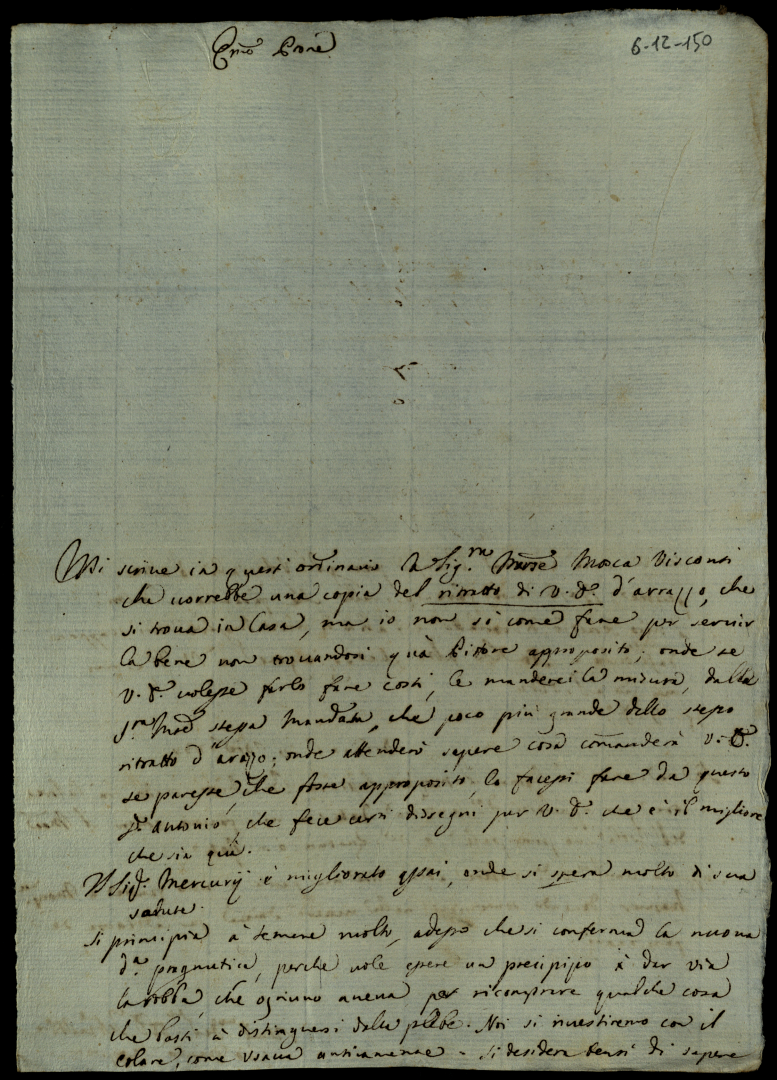 Emo Prone
6-12-150
Mi scrive in questi ordinario la Sig.ra Marse Mosca Visconti
che vorrebbe una copia del ritratto di V. E. d'arazzo, che
si trova in Casa, ma io non sò come fare per servir
la bene non trovandosi quà Pittore approposito; onde se
V. E. volesse farlo fare costì, le manderei la misura, dalla
stessa mandata, che poco più grande dello stesso
ritratto d'arazzo; onde attenderò sapere cosa comanderà V. E.
se paresse, che fosse approposito, lo facessi fare da questo
Sr. Antonio, che fece certi dissegni per V. E. che è il migliore
che sia quì.
Il Sigr. Mercurij è migliorato assai, onde si spera molto di sua
salute.
Si principia à temere molto, adesso che si conferma la nuova
da. pragmatica, perche vole essere un precipizio à dar via
la robba, che ogniuno aveva per ricomprare qualche cosa
che basti à distinguersi dalla plebe. Noi si rivestiremo con il
colare, come usava anticamene - si desidera bensì di sapere